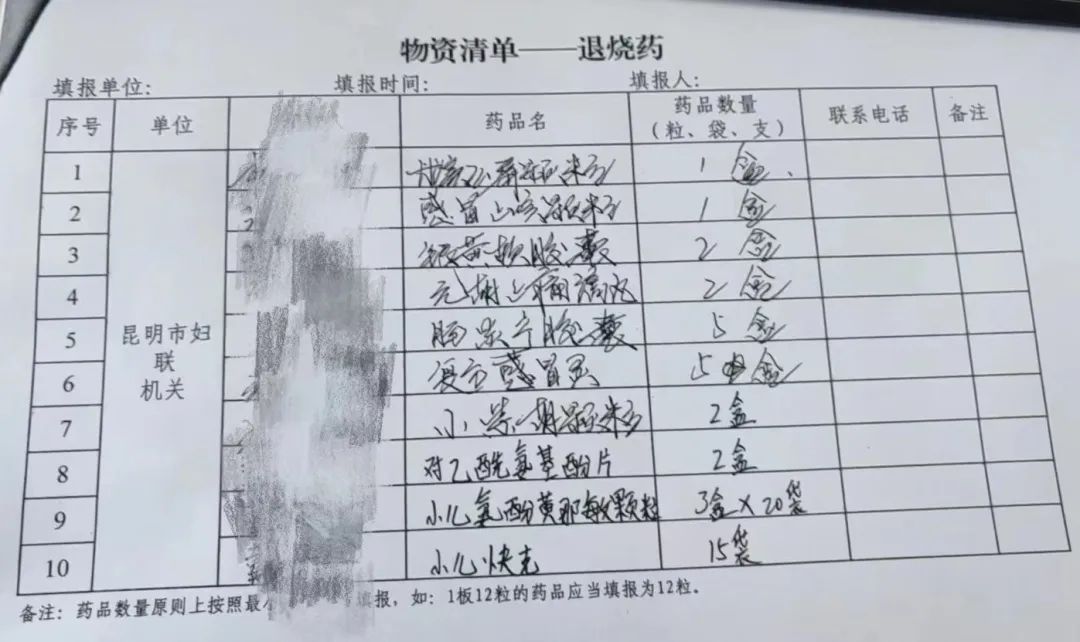 物资清单——退烧药
填报单位: 填报时间: 填报人:
序号 单位 药品名 药品数量（粒、袋、支） 联系电话 备注
昆明市妇联机关
1 颗粒 1 盒
2 感冒颗粒 1 盒
3 银黄软胶囊 2 盒
4 元胡止痛滴丸 2 盒
5 肠胶囊 5 盒
6 复方感冒灵 5 盒
7 小柴胡颗粒 2盒
8 对乙酰氨基酚片 2盒
9 小儿氨酚黄那敏颗粒 3盒×20袋
10 小儿快克 15袋
备注: 药品数量原则上按照最 填报，如: 1板12粒的药品应当填报为12粒。